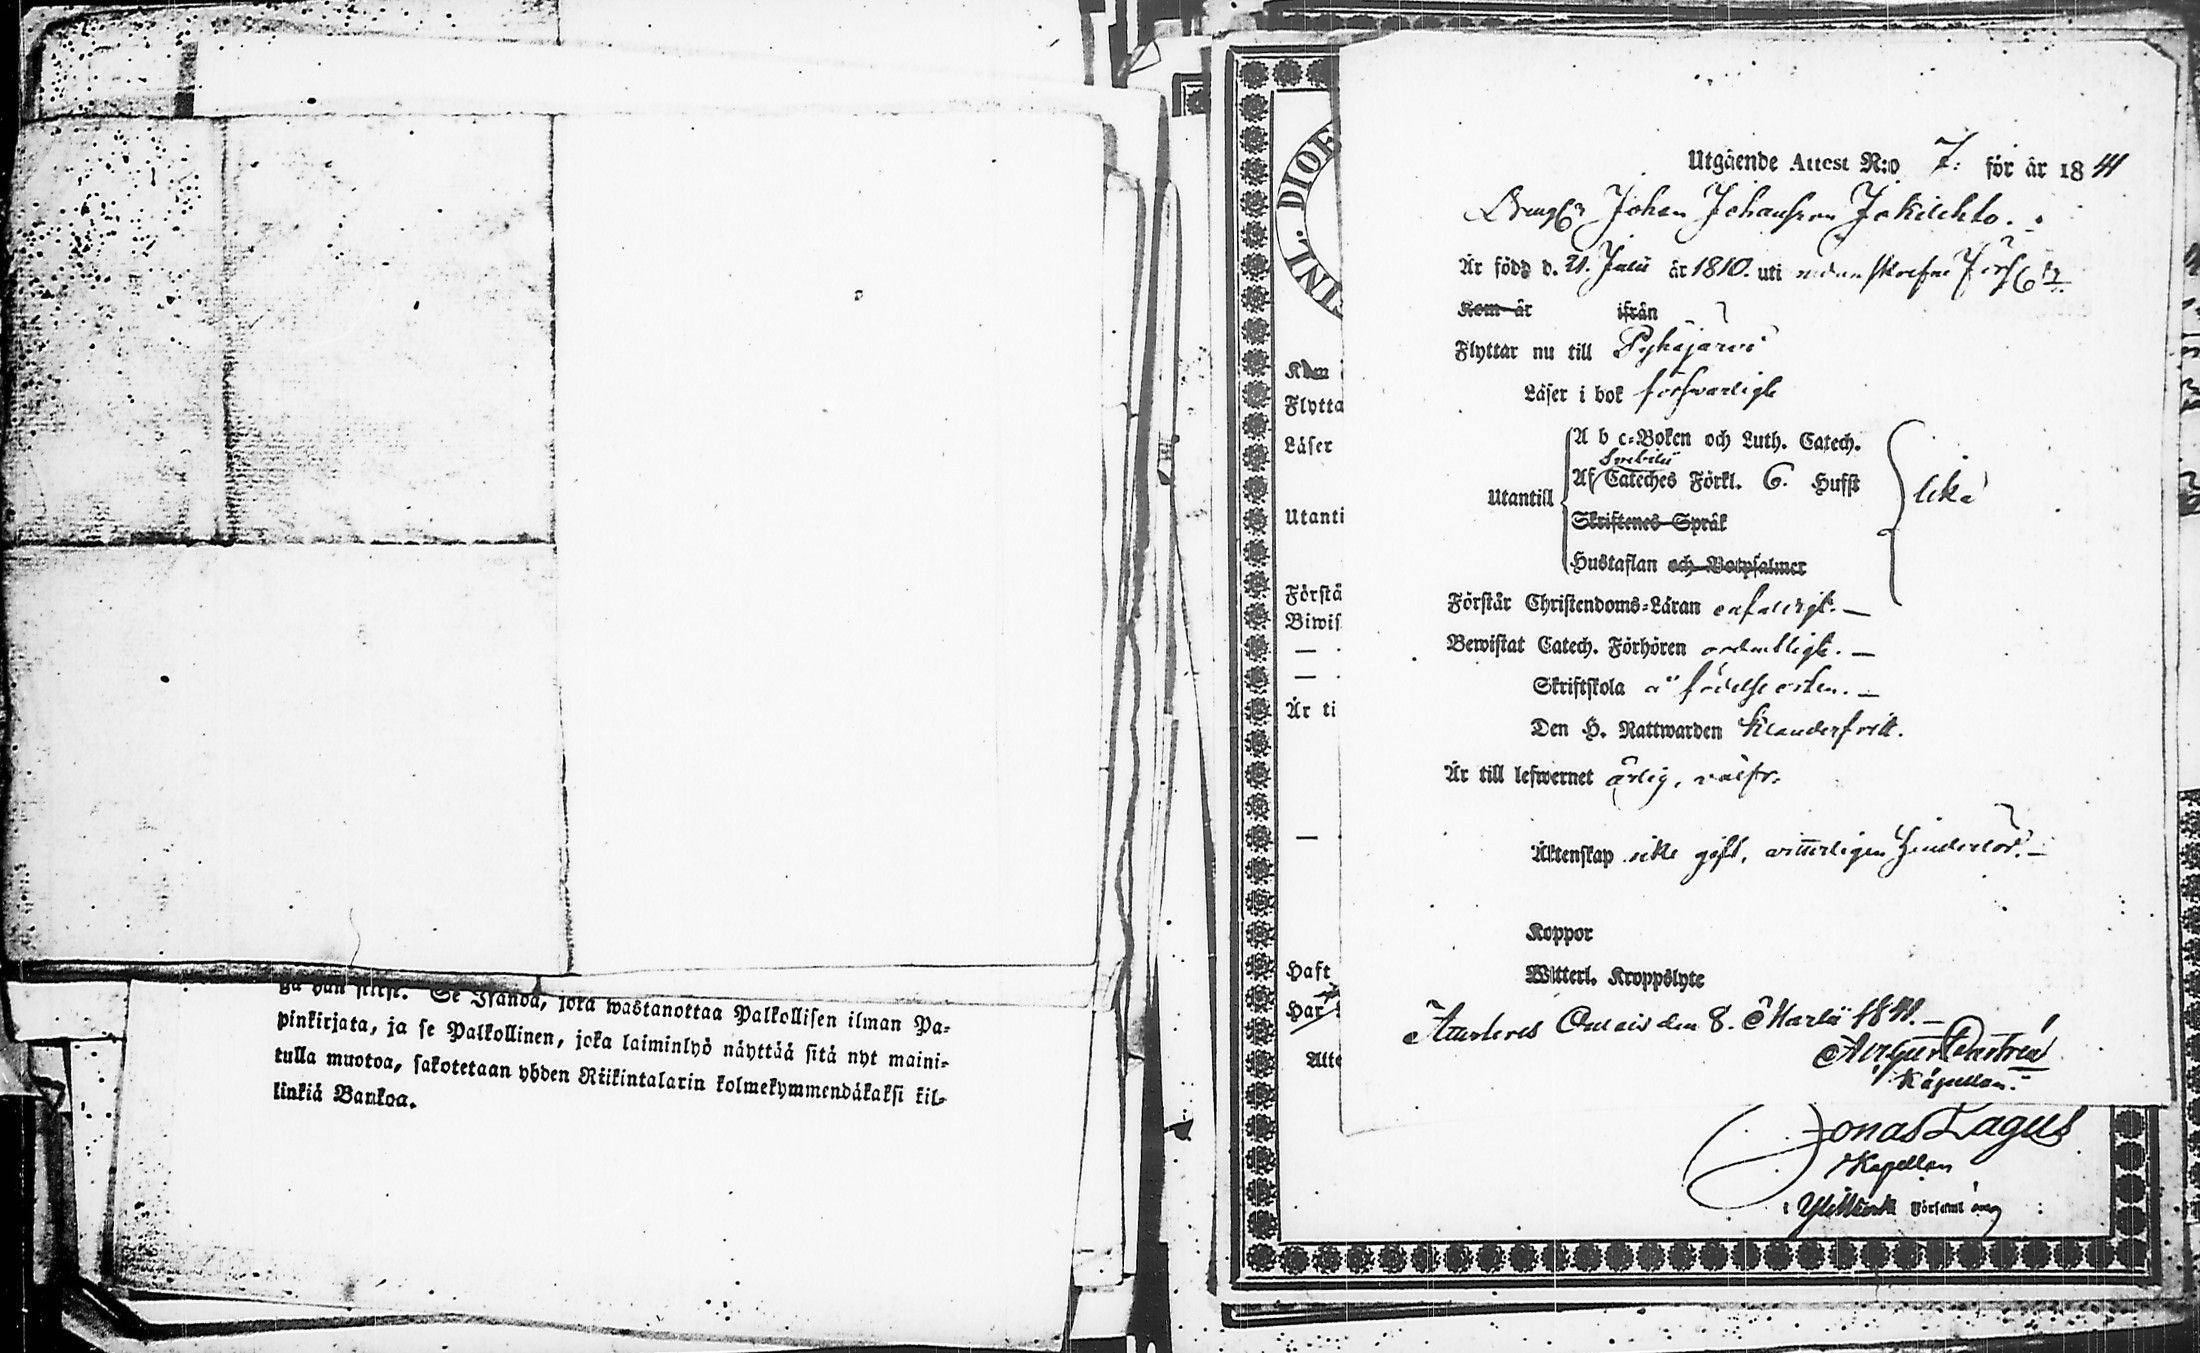 ga hän siirst. Se Isändä, joka wastanottaa Palkollisen ilman Pa-
pinkirjata, ja se Palkollinen, joka laiminlyö näyttää sitä nyt maini-
tulla muotoa, sakotetaan yhden Riikintalarin kolmekymmendäkaksi kil-
linkiä Bankoa.
INL. DIOE
Kom
Flytta
Läser
Utanti
Förstå
Biwis
—
—
Är ti
—
Haft
Har
Atte
Utgående Attest N:o 7. för år 1841
Johan Johansson Jokilehto.
Är född d. 21. Julii år 1810. uti
Kom år ifrån
Flyttar nu till Pyhäjärvi
Läser i bok försvarligt
A b c-Boken och Luth. Catech.
Svebilii
Utantill Af Cateches Förkl. 6. Hufst lika
Skriftenes Språk
Hustaflan och Botpsalmer
Förstår Christendoms-Läran enfaldigt. —
Bewistat Catech. Förhören ordentligt. —
Skriftskola å födelseorten. —
Den H. Nattwarden klanderfritt.
Är till lefwernet ärlig, välfr.
Äktenskap icke gift, vitterligen hinderlös. —
Koppor
Witterl. Kroppslyte
den 8. Martii 1841. —
Kapellan.
Jonas Lagus
Kapellan
i Ylivieska Församling